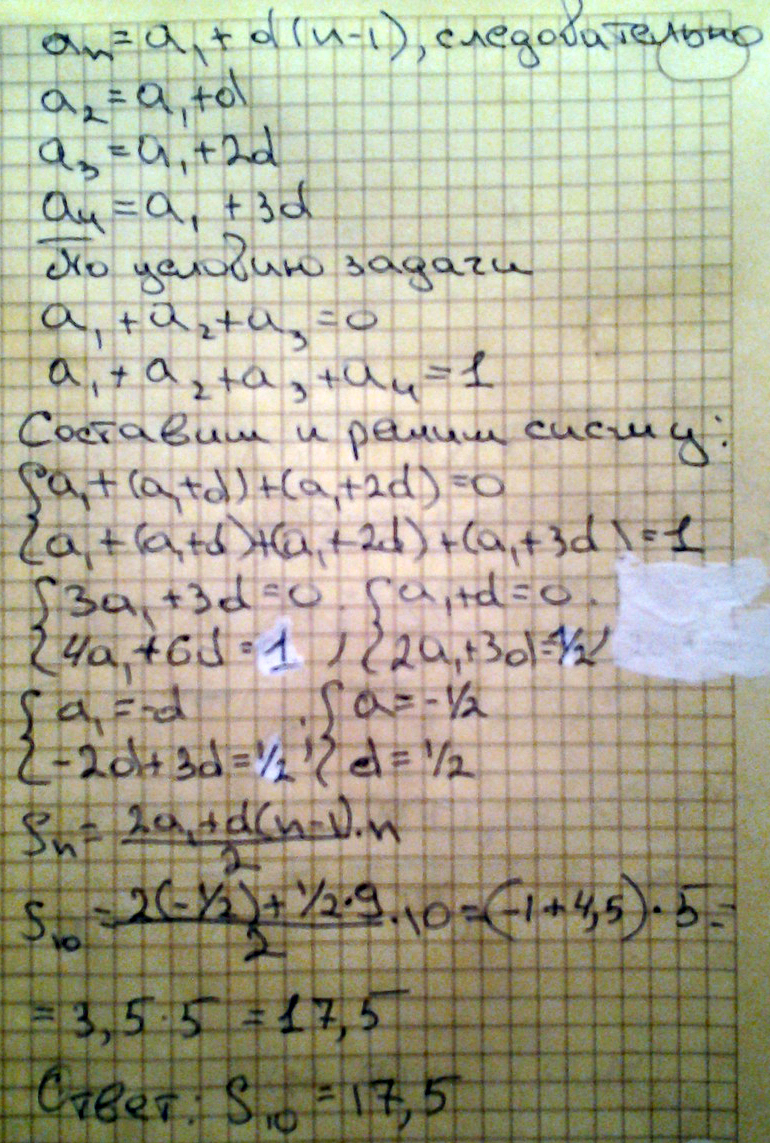 aₙ = a₁ + d(n-1), следовательно
a₂ = a₁+d
a₃ = a₁+2d
a₄ = a₁ + 3d
По условию задачи
a₁ + a₂ + a₃ = 0
a₁ + a₂ + a₃ + a₄ = 1
Составим и решим систму:
{ a₁ + (a₁+d) + (a₁+2d) = 0
{ a₁ + (a₁+d) + (a₁+2d) + (a₁+3d) = 1
{ 3a₁ + 3d = 0 . { a₁+d = 0 .
{ 4a₁ + 6d = 1 , { 2a₁+3d = 1/2 ,
{ a₁ = -d . { a = -1/2
{ -2d+3d = 1/2 , { d = 1/2
Sₙ = (2a₁+d(n-1))/2 · n
S₁₀ = (2(-1/2) + 1/2·9)/2 · 10 = (-1+4,5) · 5 =
= 3,5 · 5 = 17,5
Ответ: S₁₀ = 17,5